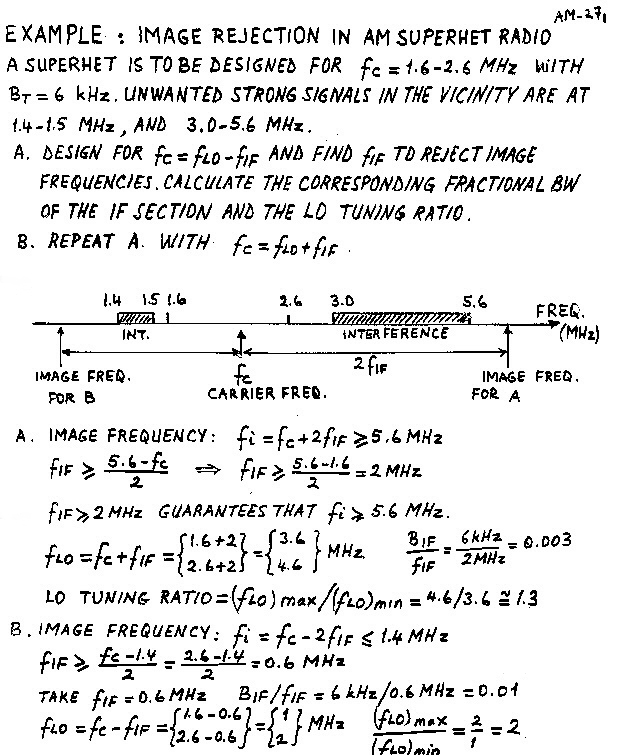 AM-27,
EXAMPLE : IMAGE REJECTION IN AM SUPERHET RADIO
A SUPERHET IS TO BE DESIGNED FOR fc = 1.6-2.6 MHz WITH
BT = 6 kHz. UNWANTED STRONG SIGNALS IN THE VICINITY ARE AT
1.4-1.5 MHz, AND 3.0-5.6 MHz.
A. DESIGN FOR fc = fLO - fIF AND FIND fIF TO REJECT IMAGE
FREQUENCIES. CALCULATE THE CORRESPONDING FRACTIONAL BW
OF THE IF SECTION AND THE LO TUNING RATIO.
B. REPEAT A. WITH fc = fLO + fIF .
1.4 1.5 1.6 2.6 3.0 5.6 FREQ.
INT. INTERFERENCE (MHz)
2 fIF
IMAGE FREQ. fc IMAGE FREQ.
FOR B CARRIER FREQ. FOR A
A. IMAGE FREQUENCY: fi = fc + 2fIF ≥ 5.6 MHz
fIF ≥ (5.6 - fc)/2 ⇒ fIF ≥ (5.6 - 1.6)/2 = 2 MHz
fIF ≥ 2 MHz GUARANTEES THAT fi ≥ 5.6 MHz.
fLO = fc + fIF = {1.6+2 2.6+2} = {3.6 4.6} MHz. BIF/fIF = 6kHz/2MHz = 0.003
LO TUNING RATIO = (fLO)max/(fLO)min = 4.6/3.6 ≅ 1.3
B. IMAGE FREQUENCY: fi = fc - 2fIF ≤ 1.4 MHz
fIF ≥ (fc - 1.4)/2 = (2.6 - 1.4)/2 = 0.6 MHz
TAKE fIF = 0.6 MHz BIF/fIF = 6 kHz/0.6 MHz = 0.01
fLO = fc - fIF = {1.6 - 0.6 2.6 - 0.6} = {1 2} MHz (fLO)max/(fLO)min = 2/1 = 2.